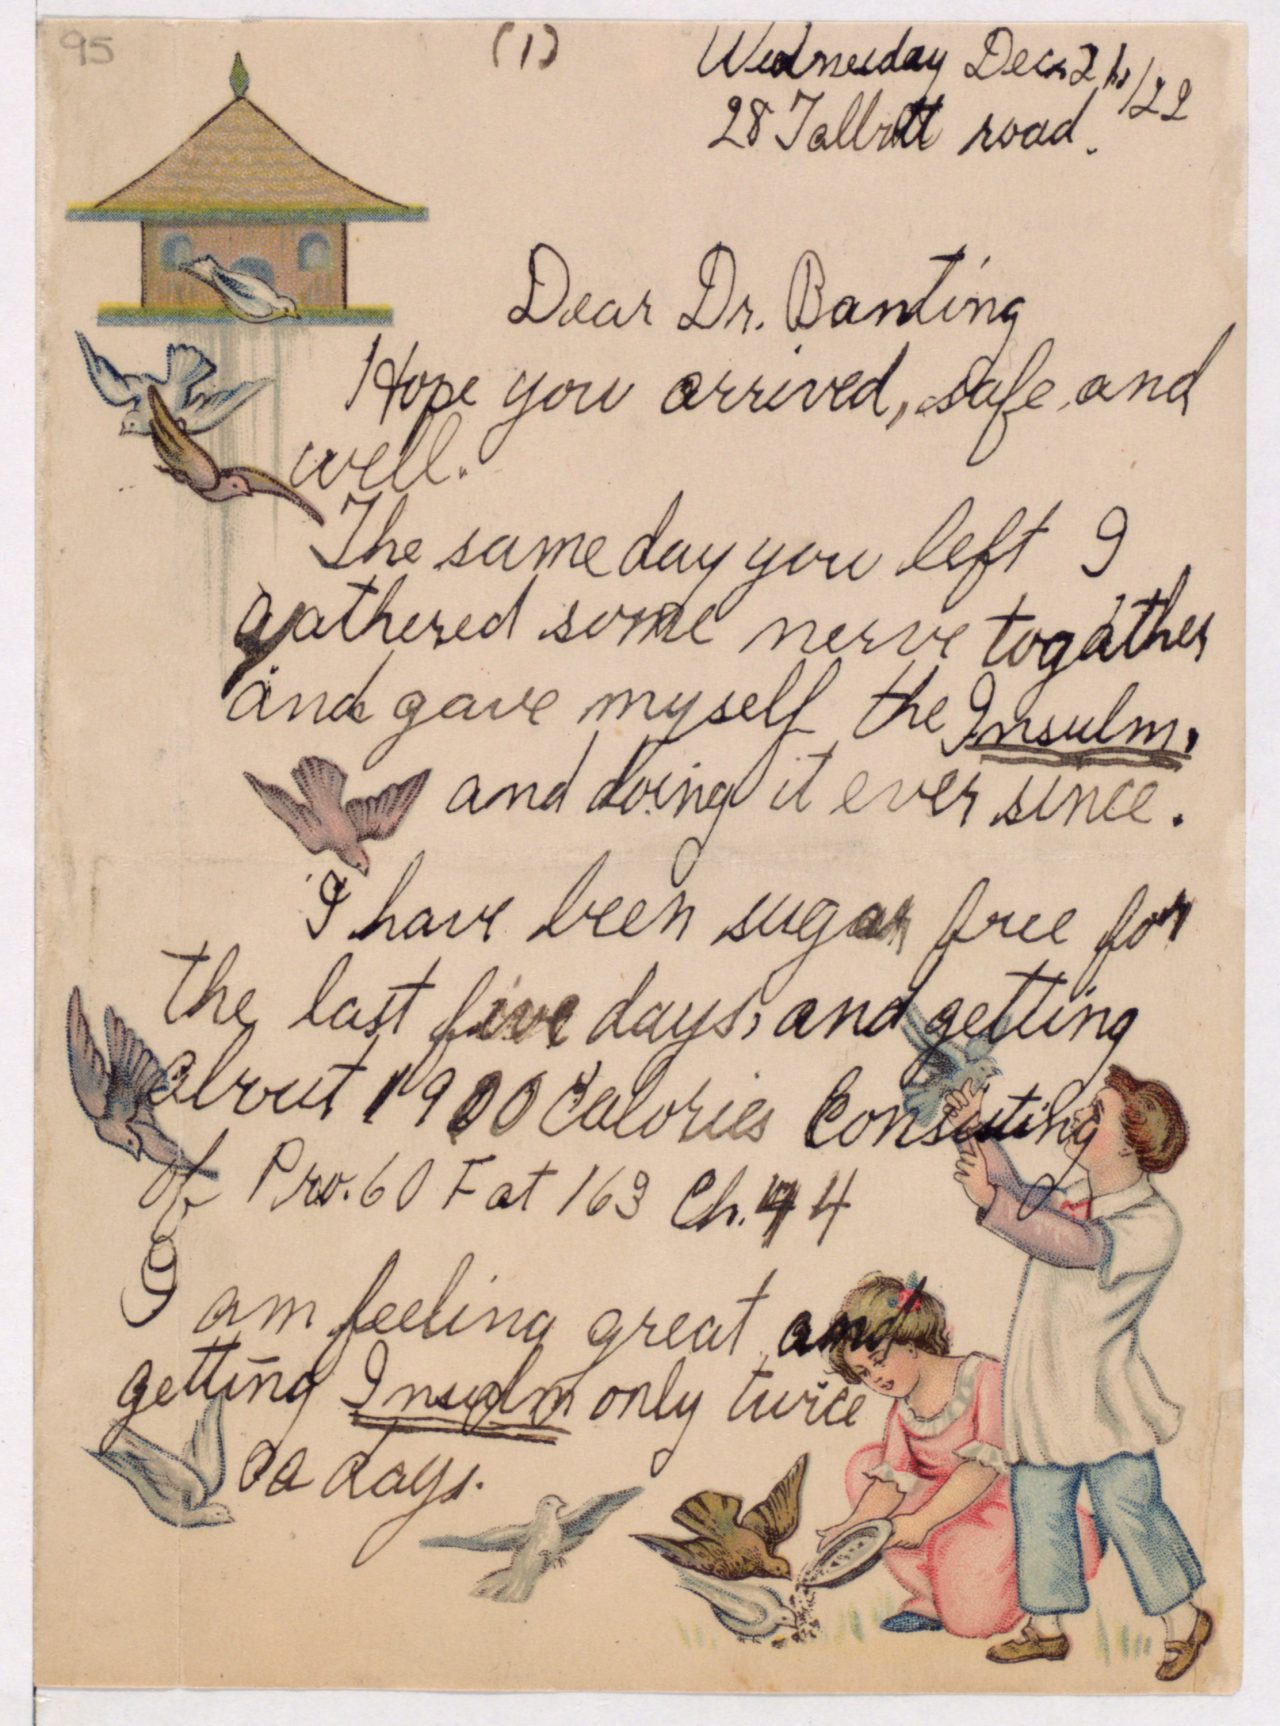 95
(1)
Wednesday Dec 2 /22
28 Tallott road.
Dear Dr. Banting
Hope you arrived, safe and
well.
The same day you left I
gathered some nerve togather
and gave myself the Insulin.
and doing it ever since.
I have been sugar free for
the last five days, and getting
about 1900 Calories Consisting
of Pro. 60 Fat 163 Ch. 44
I am feeling great and
getting Insulin only twice
a days.